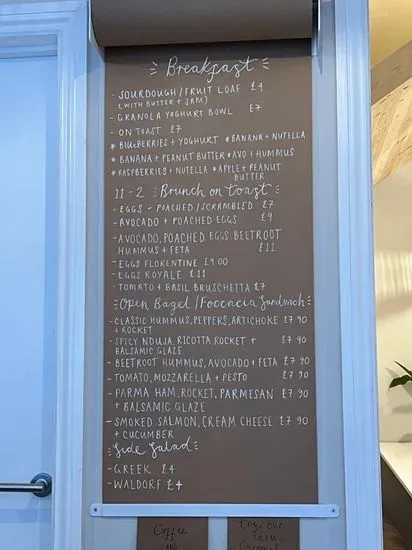 Breakfast
- SOURDOUGH/FRUIT LOAF £4
(WITH BUTTER + JAM)
- GRANOLA YOGHURT BOWL £7
- ON TOAST £7
* BLUEBERRIES + YOGHURT * BANANA + NUTELLA
* BANANA + PEANUT BUTTER * AVO + HUMMUS
* RASPBERRIES + NUTELLA * APPLE + PEANUT
BUTTER
11-2 Brunch on toast
- EGGS - POACHED/SCRAMBLED £7
- AVOCADO + POACHED EGGS £9
- AVOCADO, POACHED EGGS, BEETROOT
HUMMUS + FETA £11
- EGGS FLORENTINE £9.00
- EGGS ROYALE £11
- TOMATO + BASIL BRUSCHETTA £7
Open Bagel/Foccacia Sandwich
- CLASSIC HUMMUS, PEPPERS, ARTICHOKE £7.90
+ ROCKET
- SPICY NDUJA, RICOTTA, ROCKET + £7.90
BALSAMIC GLAZE
- BEETROOT HUMMUS, AVOCADO + FETA £7.90
- TOMATO, MOZZARELLA + PESTO £7.90
- PARMA HAM, ROCKET, PARMESAN £7.90
+ BALSAMIC GLAZE
- SMOKED SALMON, CREAM CHEESE £7.90
+ CUCUMBER
Side Salad
- GREEK £4
- WALDORF £4
Coffee
try our